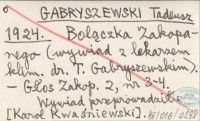 GABRYSZEWSKI Tadeusz
1924. Bolączka Zakopa-
nego (wywiad z lekarzem
klim. dr. T. Gabryszewskim).
– Głos Zakop. 2, nr 3-4.
Wywiad przeprowadził:
[Karol Kwaśniewski].